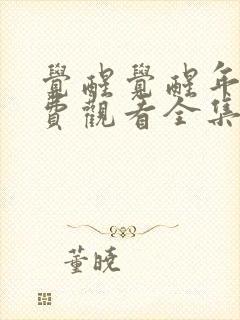 覺醒覺醒年
費觀看全集
董曉